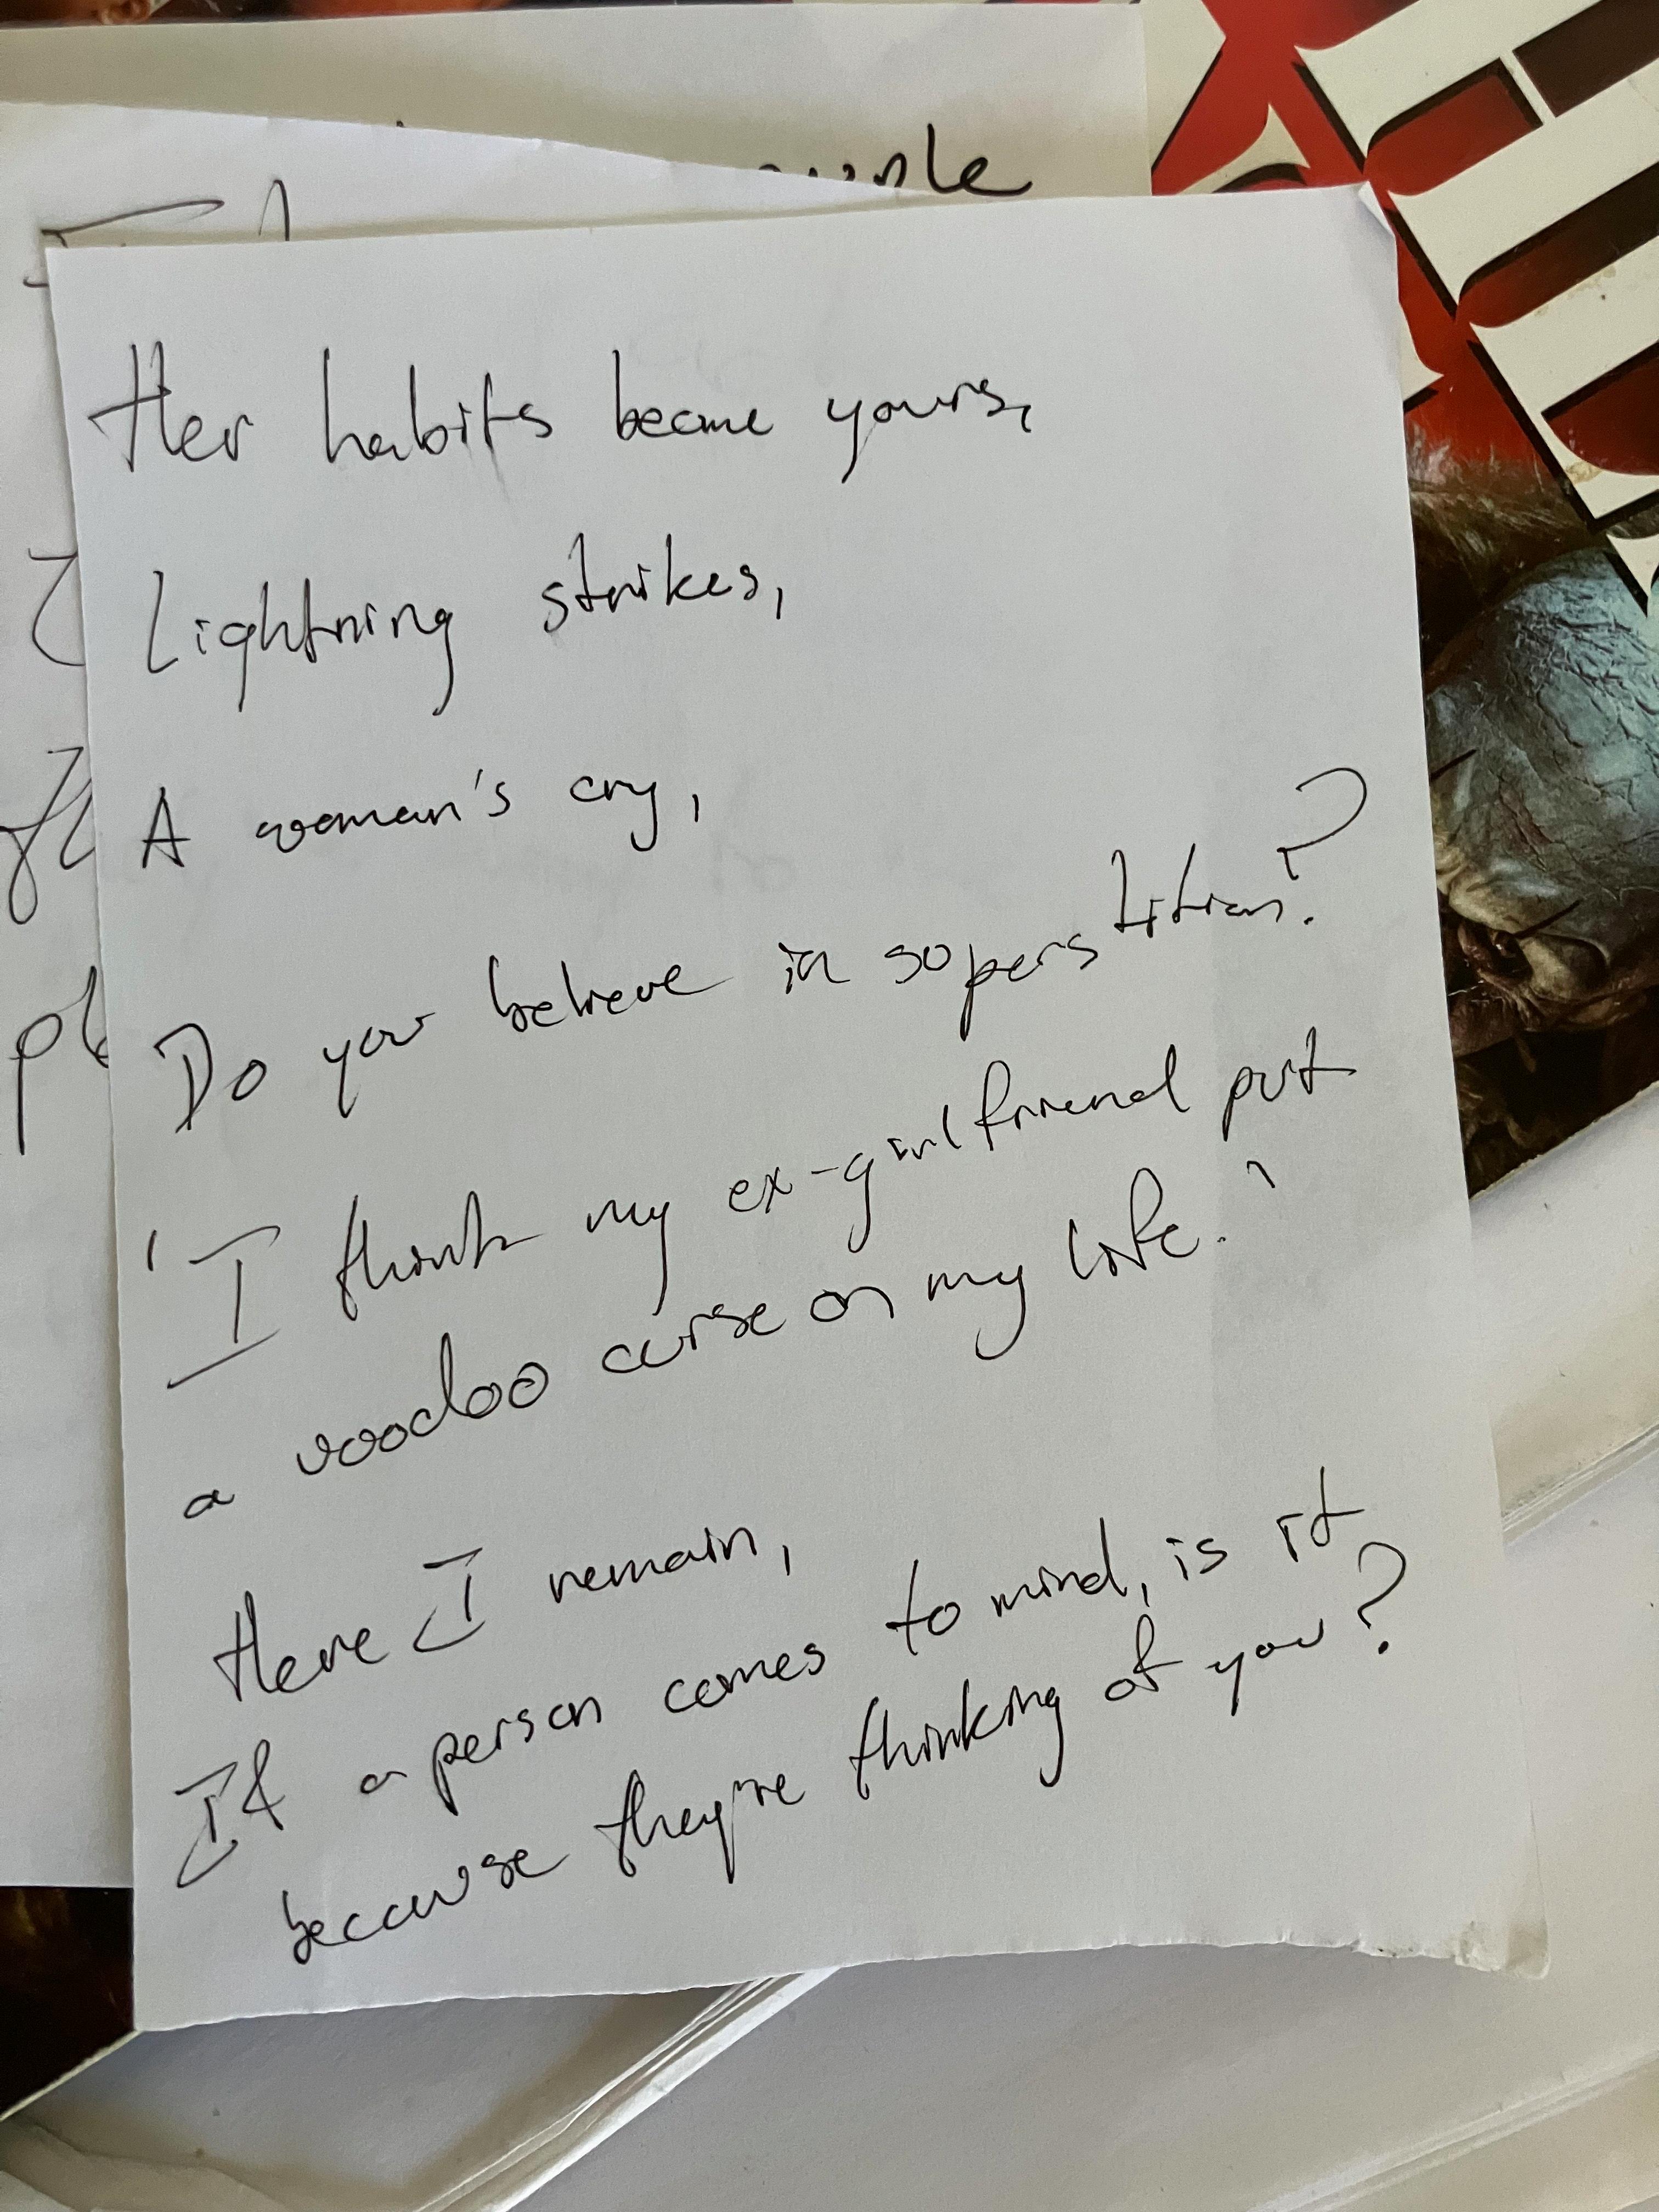 Her habits became yours,
Lightning strikes,
A woman's cry,
Do you believe in superstition?
'I think my ex-girlfriend put
a voodoo curse on my life.'
Here I remain,
If a person comes to mind, is it
because they're thinking of you?